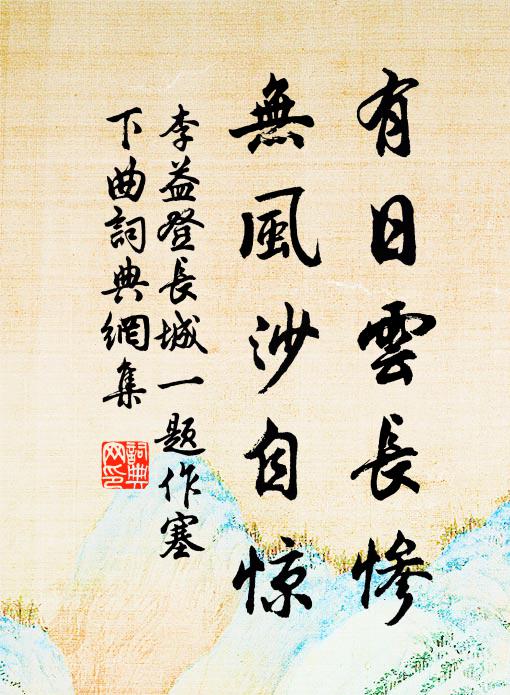 有日雲長慘
無風沙自惊
李益登長城一題作塞
下曲詞典網集
詞典
网印